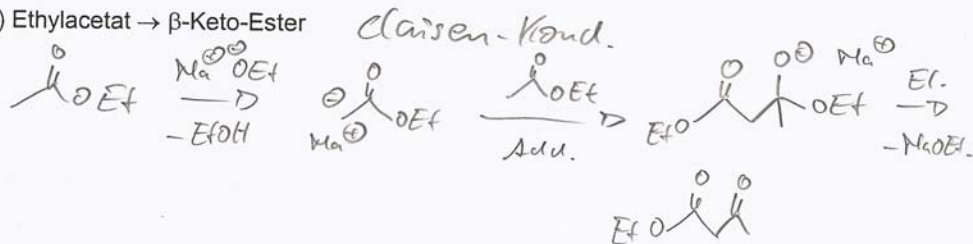 ) Ethylacetat → β-Keto-Ester Claisen-Kond.
O OEt Na⊕ ⊖OEt → - EtOH ⊖ O OEt Na⊕ O OEt → Add. O O⊖ Na⊕ EtO OEt El. → -NaOEt.
O O
EtO